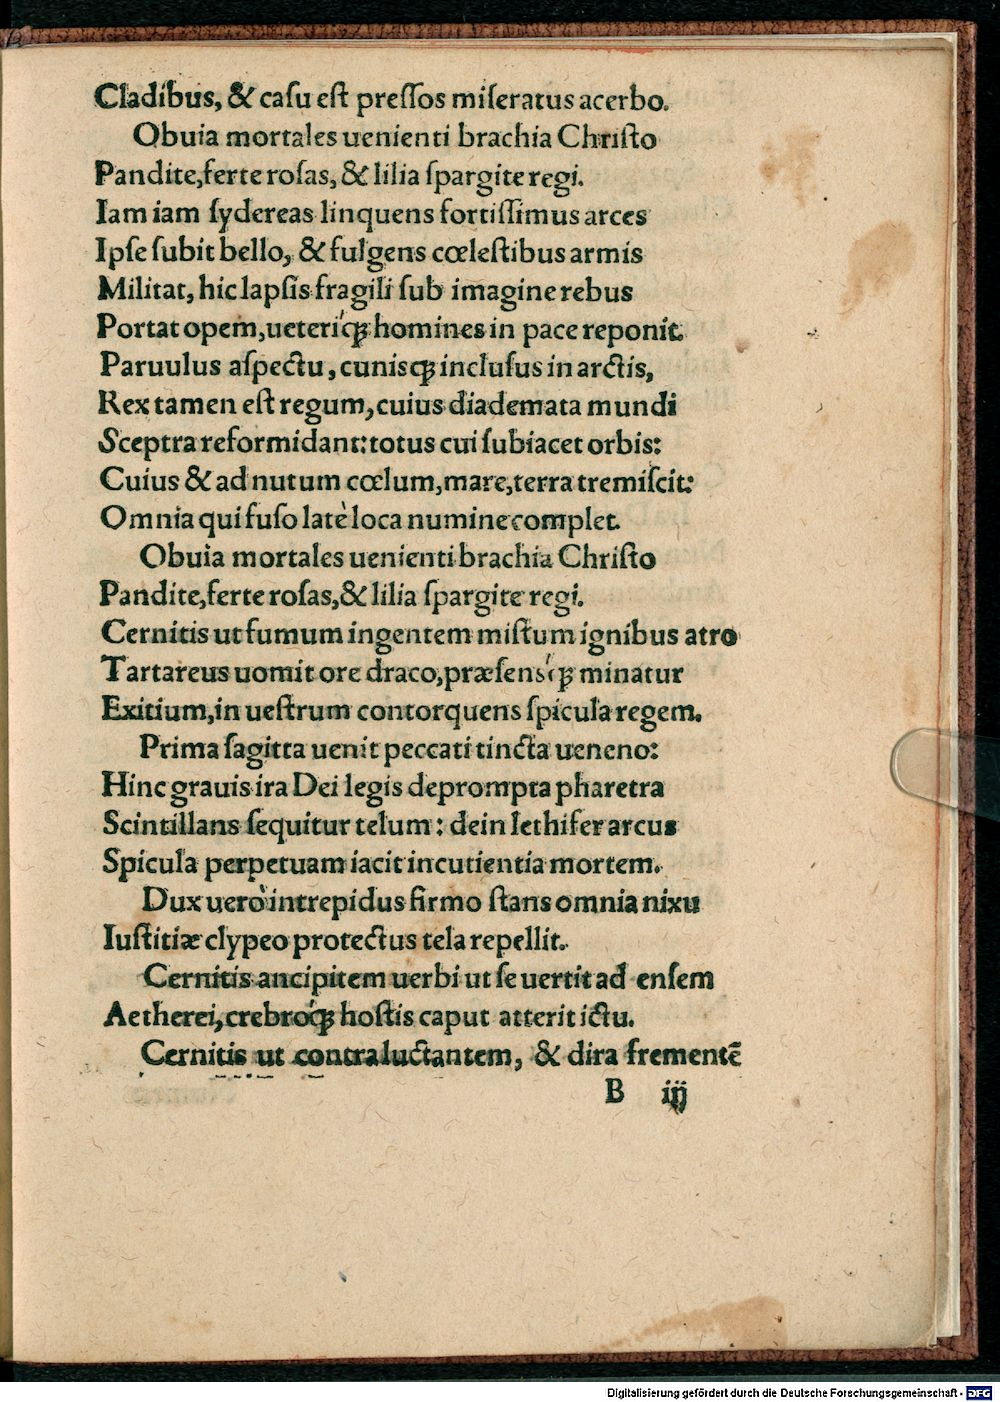 Cladibus, & caſu eſt preſſos miſeratus acerbo.
Obuia mortales uenienti brachia Chriſto
Pandite,ferte roſas, & lilia ſpargite regi.
Iam iam ſydereas linquens fortiſſimus arces
Ipſe ſubit bello, & fulgens cœleſtibus armis
Militat, hic lapſis fragili ſub imagine rebus
Portat opem,ueteriq́ꝫ homines in pace reponit.
Paruulus aſpectu, cunisqꝫ incluſus in arctis,
Rex tamen eſt regum,cuius diademata mundi
Sceptra reformidant: totus cui ſubiacet orbis:
Cuius & ad nutum cœlum,mare,terra tremiſcit:
Omnia qui fuſo latè loca numine complet.
Obuia mortales uenienti brachia Chriſto
Pandite,ferte roſas,& lilia ſpargite regi.
Cernitis ut fumum ingentem miſtum ignibus atro
Tartareus uomit ore draco,præſensq́ꝫ minatur
Exitium,in ueſtrum contorquens ſpicula regem.
Prima ſagitta uenit peccati tincta ueneno:
Hinc grauis ira Dei legis deprompta pharetra
Scintillans ſequitur telum: dein lethifer arcus
Spicula perpetuam iacit incutientia mortem.
Dux uerò intrepidus firmo ſtans omnia nixu
Iuſtitiæ clypeo protectus tela repellit.
Cernitis ancipitem uerbi ut ſe uertit ad enſem
Aetherei,crebroq́ꝫ hoſtis caput atterit ictu.
Cernitis ut contraluctantem, & dira frementē
B iij
Digitalisierung gefördert durch die Deutsche Forschungsgemeinschaft - DFG